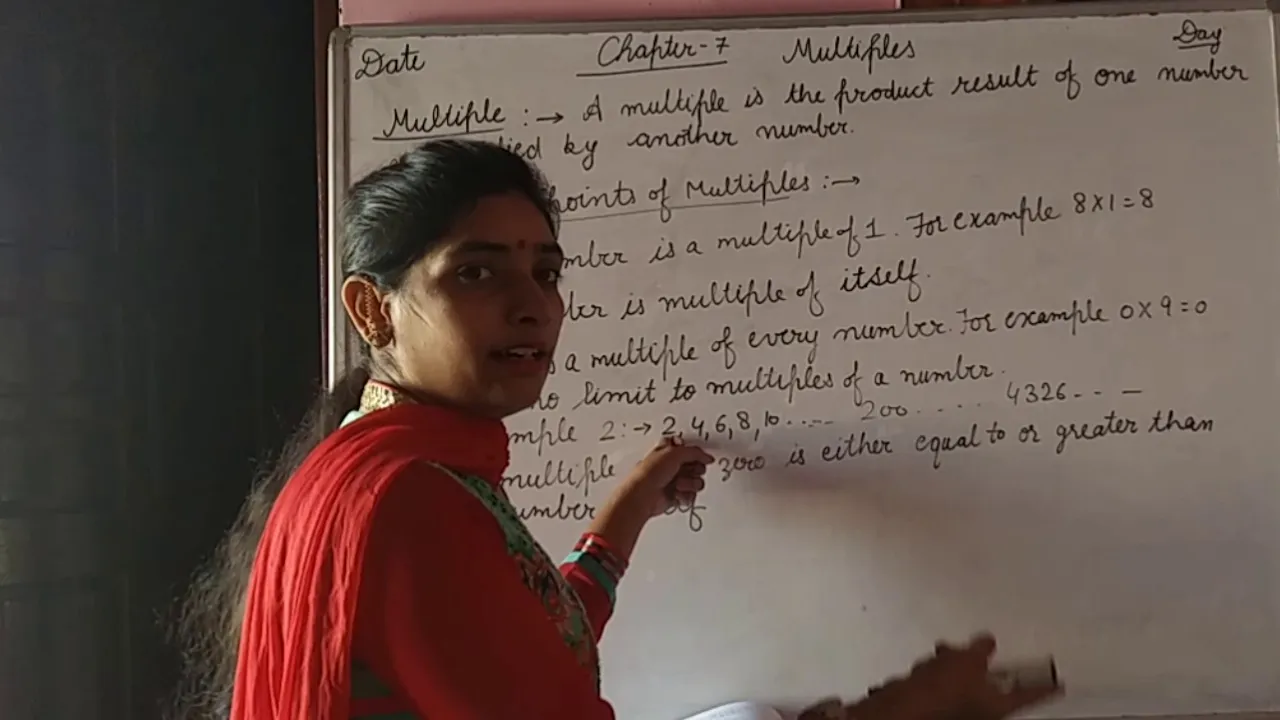 Date Chapter-7 Multiples Day
Multiple :→ A multiple is the product result of one number
by another number.
points of Multiples :→
is a multiple of 1. For example 8×1=8
is multiple of itself.
a multiple of every number. For example 0×9=0
no limit to multiples of a number.
2:→ 2,4,6,8,10..... 200..... 4326.. —
multiple zero is either equal to or greater than